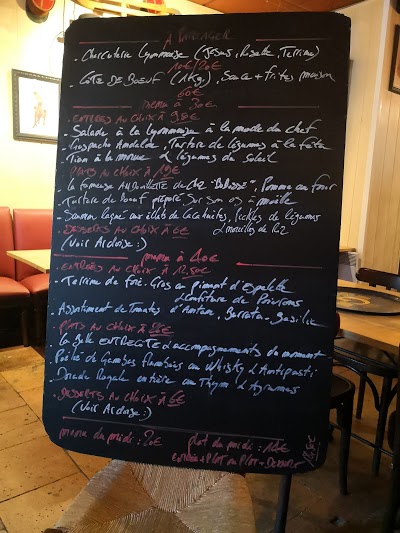 A PARTAGER
- Charcuterie Lyonnaise (Jésus, Rosette, Terrine)
- CÔTE DE BOEUF (1Kg), Sauce + frites maison
60€
menu à 30€
- ENTRÉES AU CHOIX À
- Salade à la Lyonnaise à la mode du chef
- Gaspacho Andalou, Tartare de légumes à la
- légumes du soleil
PLATS AU CHOIX À 19€
- La fameuse ANDOUILLETTE de chez "BOBOSSE", Pomme au four
- Tartare de Boeuf préparé Sur Son os à moëlle
- Saumon laqué aux éclats de Cacahuètes, Pickles de légumes
& nouilles de Riz
DESSERTS AU CHOIX À 6€
(Voir Ardoise :)
menu à 40€
- ENTRÉES AU CHOIX À 12,50€
- Terrine de foie-Gras au Piment d'Espelette
& Confiture de Poivrons
- Assortiment de Tomates d'Antan, Burrata-Basilic
- PLATS AU CHOIX À
- La Belle ENTRECÔTE d'accompagnements du moment
- Poêlée de Gambas flambées au Whisky & Antipasti
- Dorade Royale entière au Thym & Agrumes
- DESSERTS AU CHOIX À 6€
(Voir Ardoise :)
menu du midi : 20€ plat du midi : 14€
ENTRÉE + PLAT ou PLAT + DESSERT